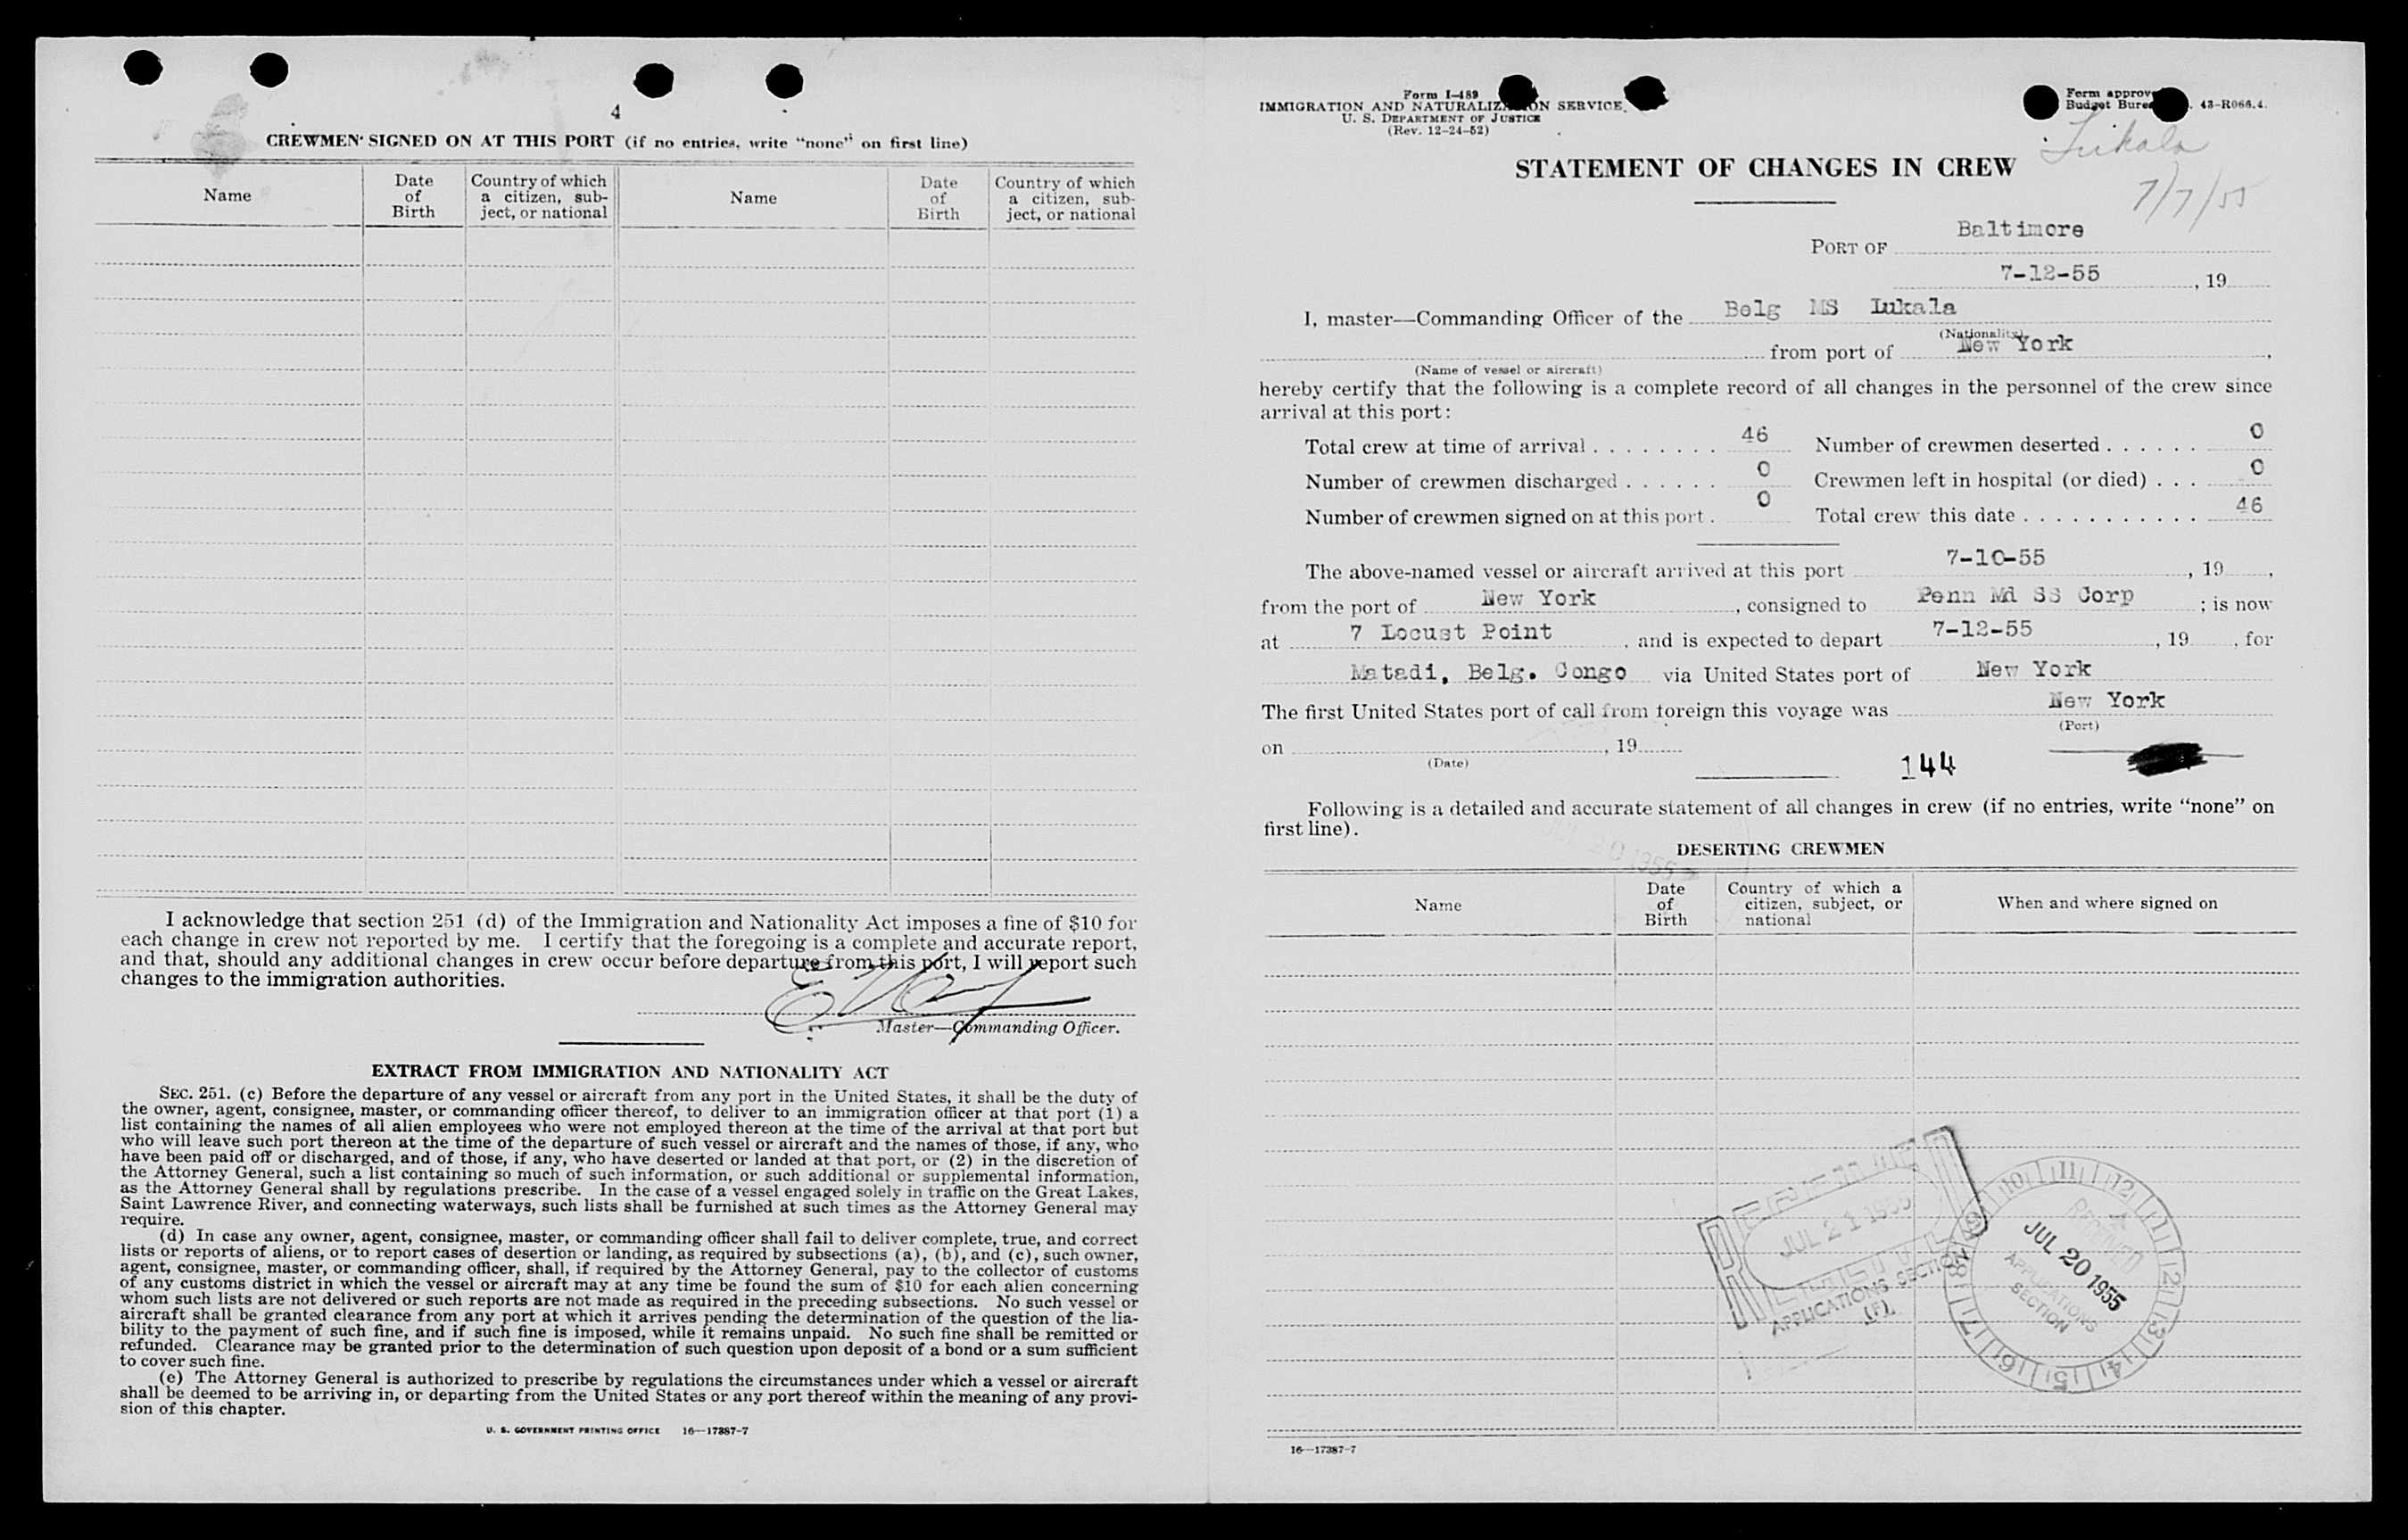 4
CREWMEN SIGNED ON AT THIS PORT (if no entries, write "none" on first line)
Name
Date
of
Birth
Country of which
a citizen, sub-
ject, or national
Name
Date
of
Birth
Country of which
a citizen, sub-
ject, or national
I acknowledge that section 251 (d) of the Immigration and Nationality Act imposes a fine of $10 for
each change in crew not reported by me. I certify that the foregoing is a complete and accurate report,
and that, should any additional changes in crew occur before departure from this port, I will report such
changes to the immigration authorities.
Master—Commanding Officer.
EXTRACT FROM IMMIGRATION AND NATIONALITY ACT
SEC. 251. (c) Before the departure of any vessel or aircraft from any port in the United States, it shall be the duty of
the owner, agent, consignee, master, or commanding officer thereof, to deliver to an immigration officer at that port (1) a
list containing the names of all alien employees who were not employed thereon at the time of the arrival at that port but
who will leave such port thereon at the time of the departure of such vessel or aircraft and the names of those, if any, who
have been paid off or discharged, and of those, if any, who have deserted or landed at that port, or (2) in the discretion of
the Attorney General, such a list containing so much of such information, or such additional or supplemental information,
as the Attorney General shall by regulations prescribe. In the case of a vessel engaged solely in traffic on the Great Lakes,
Saint Lawrence River, and connecting waterways, such lists shall be furnished at such times as the Attorney General may
require.
(d) In case any owner, agent, consignee, master, or commanding officer shall fail to deliver complete, true, and correct
lists or reports of aliens, or to report cases of desertion or landing, as required by subsections (a), (b), and (c), such owner,
agent, consignee, master, or commanding officer, shall, if required by the Attorney General, pay to the collector of customs
of any customs district in which the vessel or aircraft may at any time be found the sum of $10 for each alien concerning
whom such lists are not delivered or such reports are not made as required in the preceding subsections. No such vessel or
aircraft shall be granted clearance from any port at which it arrives pending the determination of the question of the lia-
bility to the payment of such fine, and if such fine is imposed, while it remains unpaid. No such fine shall be remitted or
refunded. Clearance may be granted prior to the determination of such question upon deposit of a bond or a sum sufficient
to cover such fine.
(e) The Attorney General is authorized to prescribe by regulations the circumstances under which a vessel or aircraft
shall be deemed to be arriving in, or departing from the United States or any port thereof within the meaning of any provi-
sion of this chapter.
U. S. GOVERNMENT PRINTING OFFICE 16—17387-7
Form I-489
IMMIGRATION AND NATURALIZATION SERVICE
U. S. DEPARTMENT OF JUSTICE
(Rev. 12-24-52)
Form approve
Budget Bure 43-R066.4.
Lukala
7/7/55
STATEMENT OF CHANGES IN CREW
PORT OF Baltimore
7-12-55, 19
I, master—Commanding Officer of the Belg MS Lukala
(Nationality)
from port of New York,
(Name of vessel or aircraft)
hereby certify that the following is a complete record of all changes in the personnel of the crew since
arrival at this port:
Total crew at time of arrival 46 Number of crewmen deserted 0
Number of crewmen discharged 0 Crewmen left in hospital (or died) 0
Number of crewmen signed on at this port 0 Total crew this date 46
The above-named vessel or aircraft arrived at this port 7-10-55, 19,
from the port of New York, consigned to Penn Md SS Corp; is now
at 7 Locust Point, and is expected to depart 7-12-55, 19, for
Matadi, Belg. Congo via United States port of New York
The first United States port of call from foreign this voyage was New York
(Port)
on , 19
(Date)
144
Following is a detailed and accurate statement of all changes in crew (if no entries, write "none" on
first line).
JUL 20 1955
DESERTING CREWMEN
Name
Date
of
Birth
Country of which a
citizen, subject, or
national
When and where signed on
JUL 21 1955
APPLICATIONS SECTION
(F)
10 11 12 1 2 3 4 5 6 7 8 9
RECEIVED
JUL 20 1955
APPLICATIONS
SECTION
16—17387-7